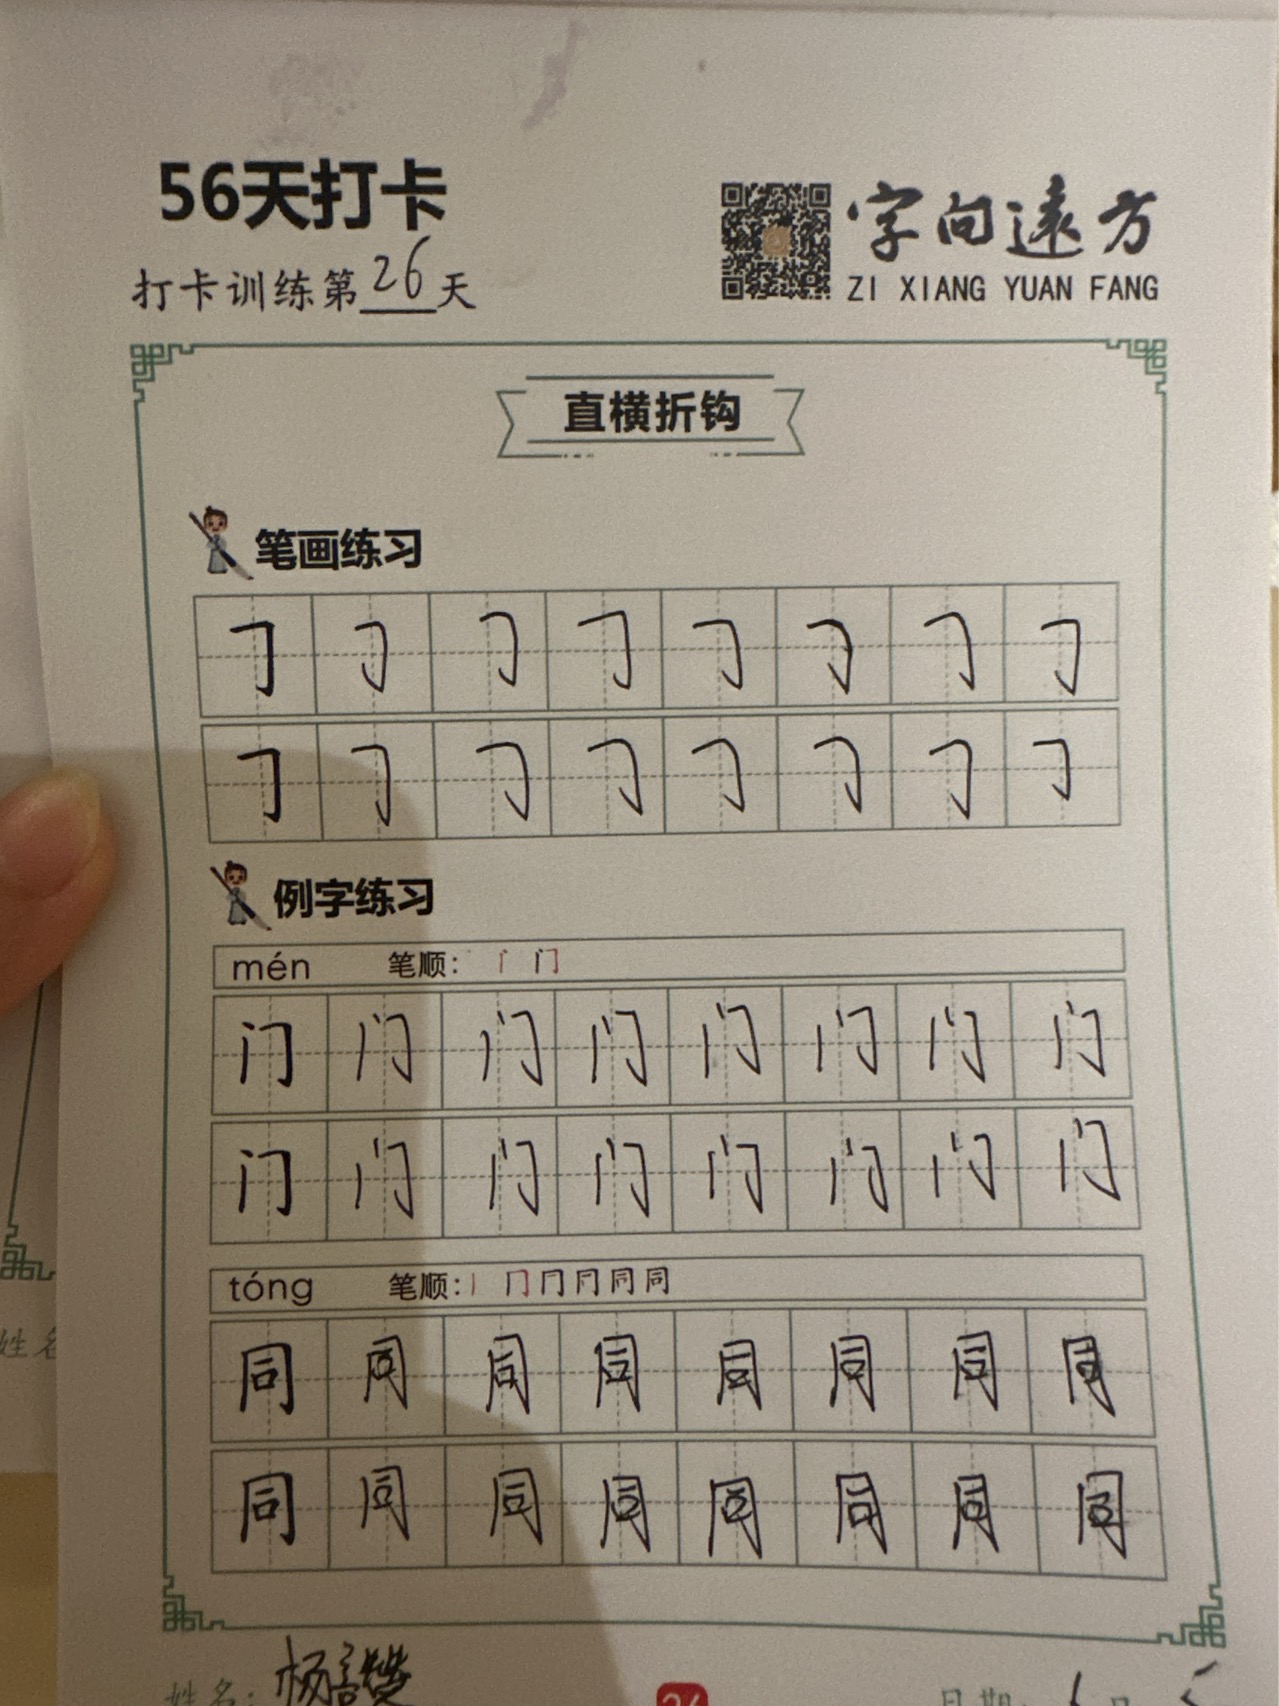 56天打卡
字向远方
打卡训练第26天
ZI XIANG YUAN FANG
直横折钩
笔画练习
㇆ ㇆ ㇆ ㇆ ㇆ ㇆ ㇆ ㇆
㇆ ㇆ ㇆ ㇆ ㇆ ㇆ ㇆ ㇆
例字练习
mén 笔顺: 门
门 门 门 门 门 门 门 门
门 门 门 门 门 门 门 门
tóng 笔顺: 丨 冂 同 同
同 同 同 同 同 同 同 同
同 同 同 同 同 同 同 同
姓名
姓名: 杨
26
日期: